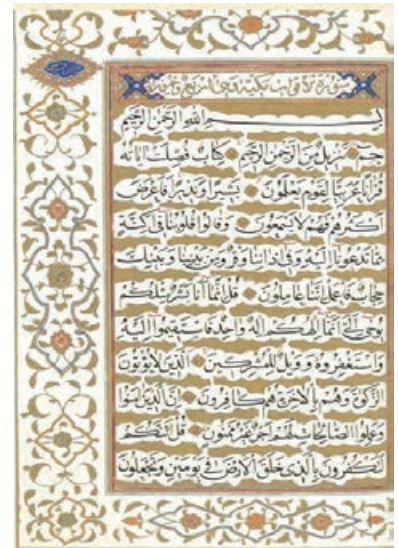 سورة الاقوات مكية وهي اربع
بسم الله الرحمن الرحيم
حم تنزيل من الرحمن الرحيم كتاب فصلت اياته
قرانا عربيا لقوم يعلمون بشيرا ونذيرا فاعرض
اكثرهم فهم لا يسمعون وقالوا قلوبنا في اكنة
مما تدعونا اليه وفي اذاننا وقر ومن بيننا وبينك
حجاب فاعمل اننا عاملون قل انما انا بشر مثلكم
يوحى الي انما الهكم اله واحد فاستقيموا اليه
واستغفروه وويل للمشركين الذين لا يؤتون
الزكوة وهم بالاخرة هم كافرون ان الذين امنوا
وعملوا الصالحات لهم اجر غير ممنون قل ائنكم
لتكفرون بالذي خلق الارض في يومين وتجعلون